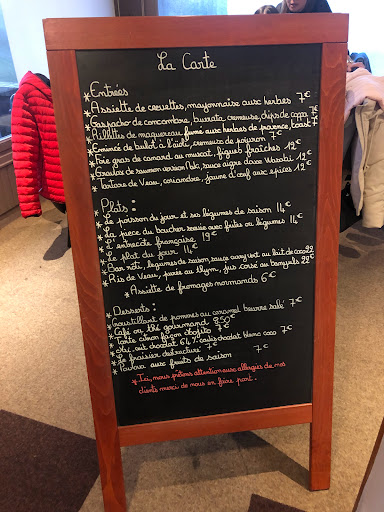 La Carte
Entrées
* Assiette de crevettes, mayonnaise aux herbes 7€
* Gaspacho de concombre, burrata cremeuse, chips de 7€
* Rillettes de maquereau fumé aux herbes de provence, toast 7€
* Emincé de bulot à l'aïoli, cremeux de poivron
* Foie gras de canard au muscat, figues fraîches 12€
* Gravlax de saumon version Polo, sauce aigre douce Wasabi 12€
* Tartare de Veau, coriandre, jaune d'œuf aux épices 12€
Plats :
* Le poisson du jour et ses légumes de saison 14€
* La pièce du boucher servie avec frites ou légumes 14€
* L'entrecôte française 19€
* Le plat du jour 14€
* Bar roti, légumes de saison, sauce au lait de coco 22
* Ris de Veau, purée au thym, jus corsé au banyuls 22€
* Assiette de fromages normands 6€
* Desserts :
* Croustillant de pommes au caramel beurre salé 7€
* Café ou thé gourmand 8,50€
* Tarte citron façon 7€
* chocolat 64%, coulis chocolat blanc coco 7€
* Le fraisier destructuré 7€
* Pavlova aux fruits de saison 7€
* Ici, nous prêtons attention aux allergies de nos
clients merci de nous en faire part.